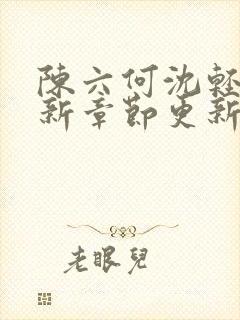 陳六何沈輕
新章節更新
老眼兒